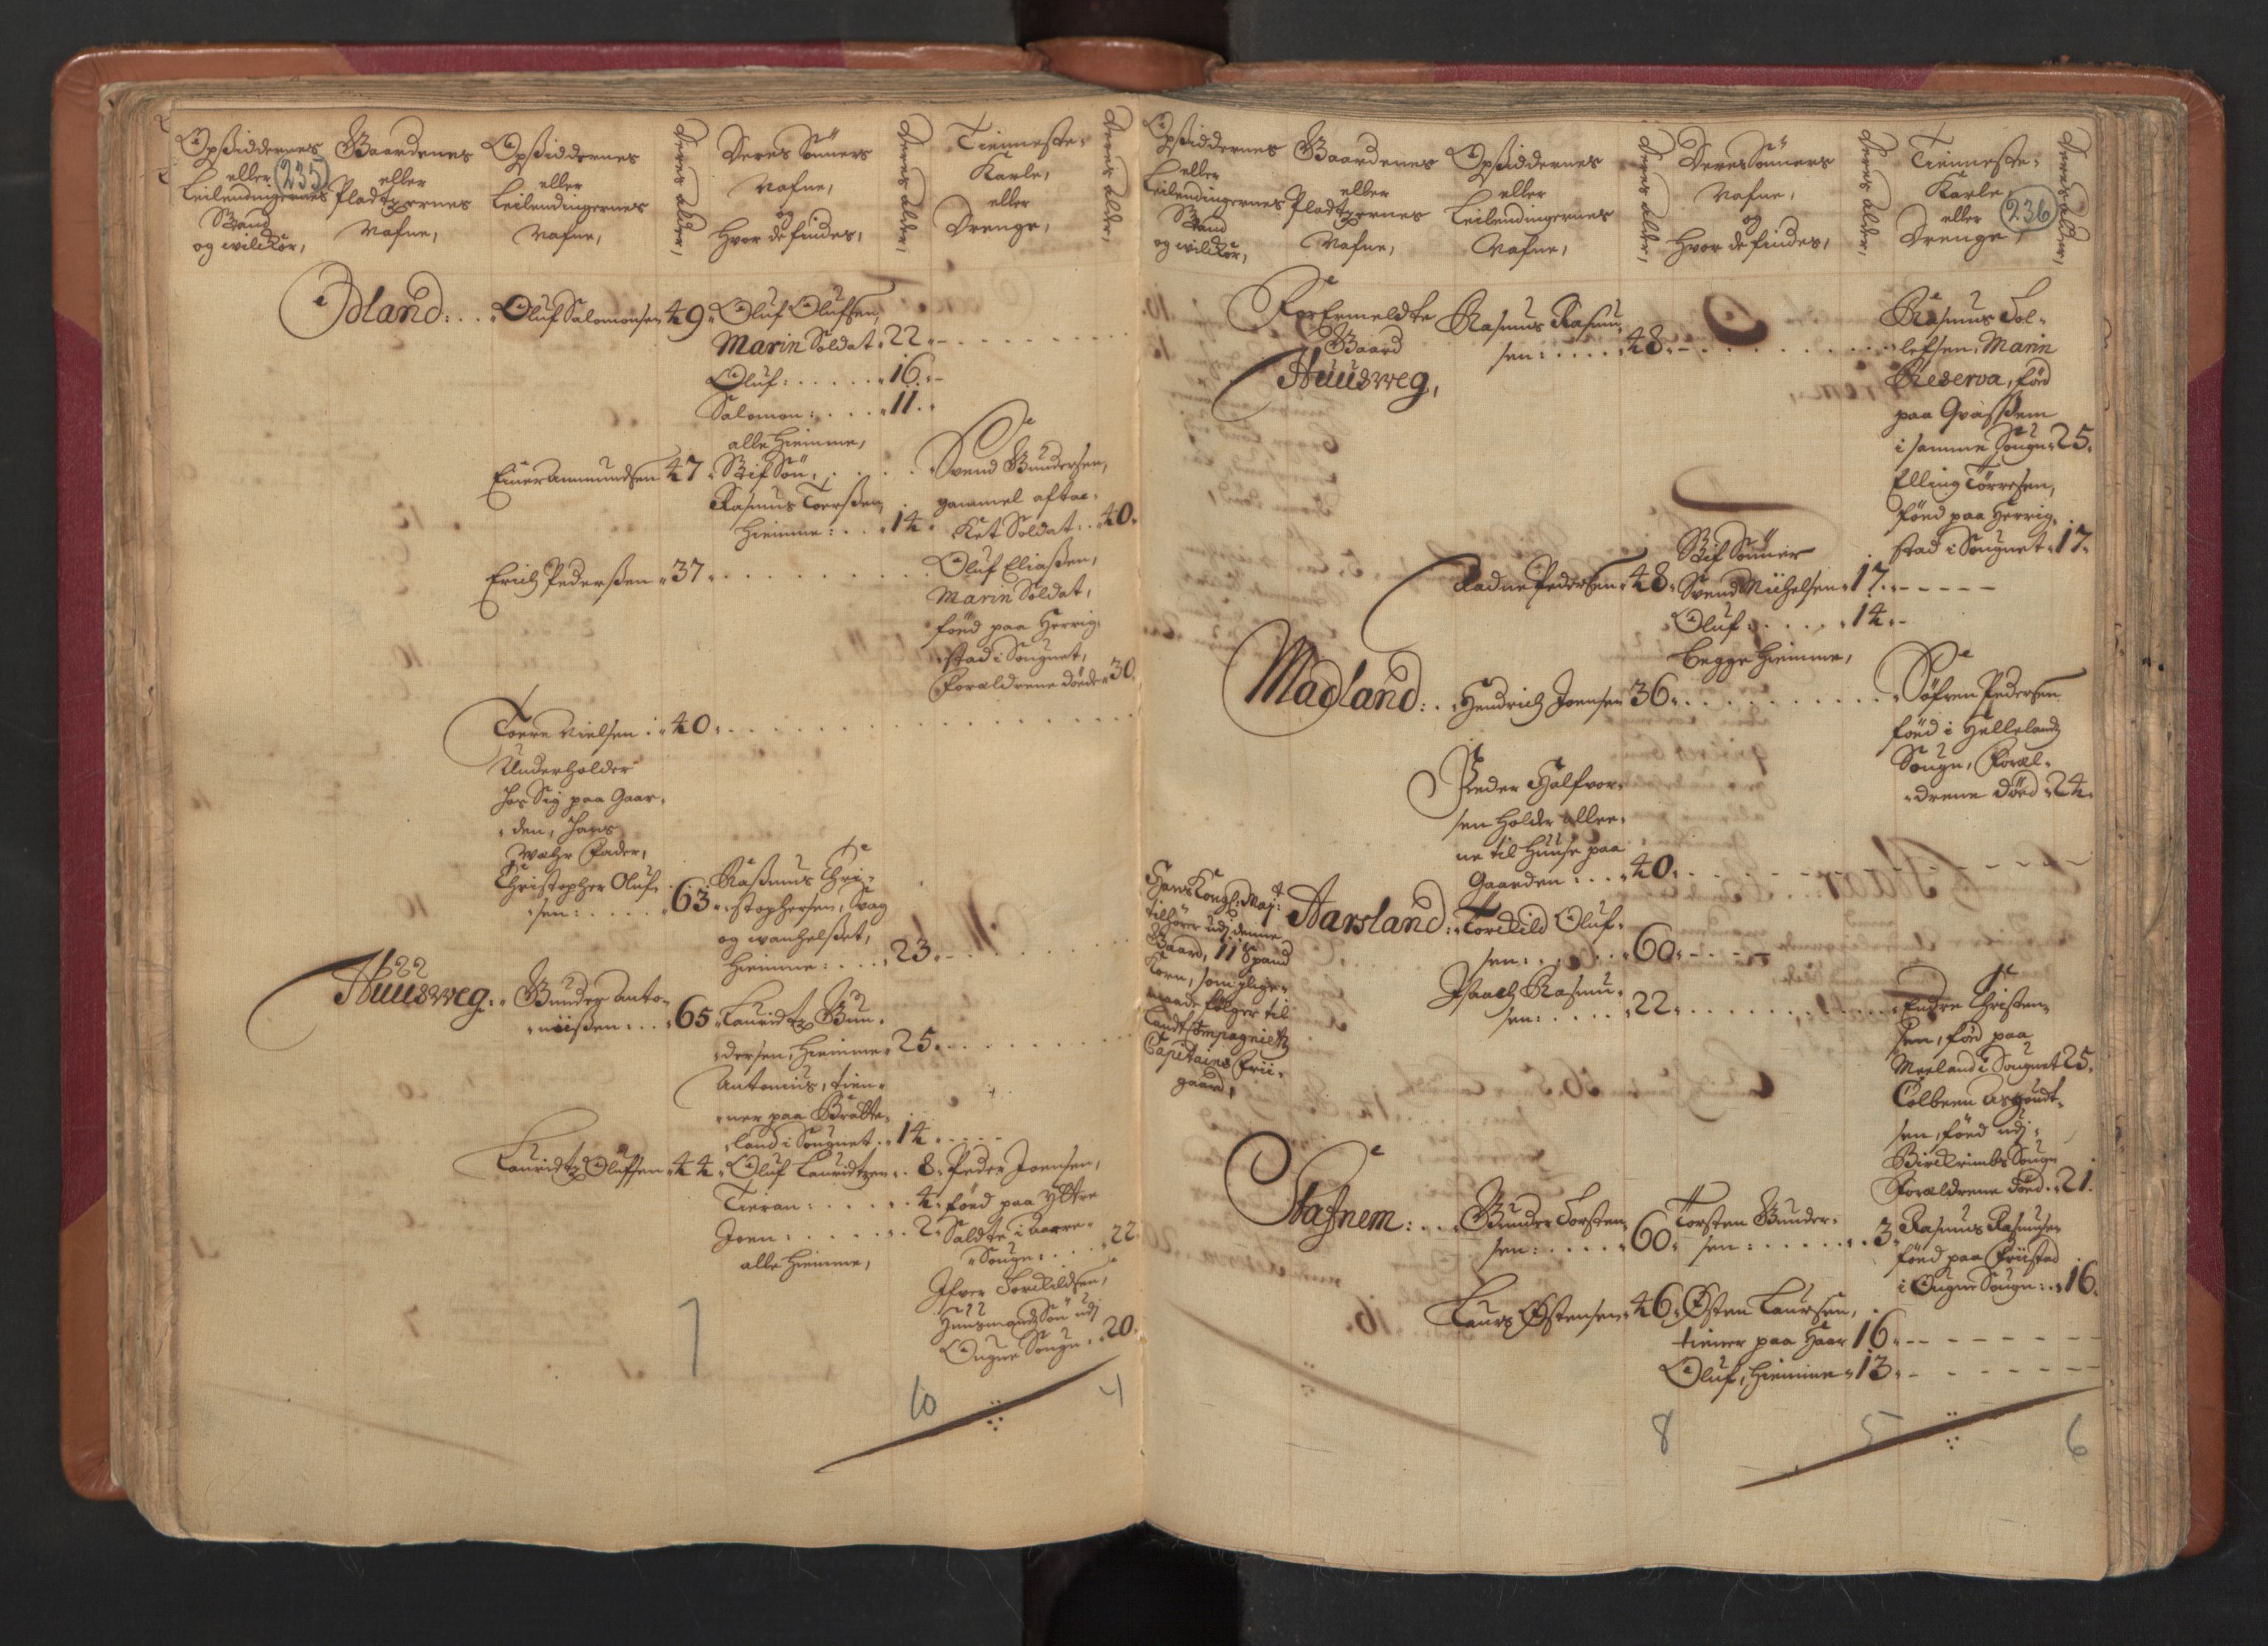 Opsiddernes
eller
Leilendingernes
Stand
og wilckor,
235
Gaardenes
eller
Pladtzernes
Nafne,
Opsiddernes
eller
Leilendingernes
Nafne,
Deres Alder,
Deres Sönners
Nafne,
og
hvor de findes,
Deres Alder,
Tienneste-
Karle,
eller
Drenge,
Deres Alder,
Odland: . . Oluf Salomonsen 49. Oluf Olufsen,
Marin Soldat. 22.
Oluf: . . . . . 16.
Salomon: . . . 11.
alle hiemme,
Einer Ammundsen 47. Stif Sön,
Rasmus Toersen
hiemme: . . . 14.
Svend Gundersen,
gammel aftac-
ket Soldat: . 40.
Erich Pedersen. 37.
Oluf Eliasen,
Marin Soldat,
föed paa Herrig-
stad i Sougnet,
Forældrene döede. 30.
Toere Nielsen: . 40.
Underholder
hos Sig paa Gaar-
den, hans
Fader,
Christopher Oluf-
sen: . . . . . 63.
Rasmus Chri-
stophersen, Svag
og wanhelset,
hiemme: . . . 23.
Huusweg: . Gunder Anto-
niisen: . . . 65.
Lauridtz Gun-
dersen, hiemme. 25.
Antonius, tien-
ner paa Bratte-
land i Sougnet. 14.
Lauridtz Olufsen. 44. Oluf Lauridtzen. . 8.
Tieran: . . . . . 4.
Joen: . . . . . . 2.
alle hiemme,
Peder Joensen,
föed paa Yttre
Saldte i Barre-
Sougn: . . . 22.
Ifver Torkildsen,
Huusmands Sön udj
Ougne Sougn. . 20.
7
10
4
Opsiddernes
eller
Leilendingernes
Stand
og wilckor,
Gaardenes
eller
Pladtzernes
Nafne,
Opsiddernes
eller
Leilendingernes
Nafne,
Deres Alder,
Deres Sönners
Nafne,
og
hvor de findes,
Deres Alder,
Tienneste-
Karle,
eller
Drenge,
236
Deres Alder,
Forermeldte
Gaard
Huusweg,
Rasmus Rasmu-
sen: . . . . . 48.
Rasmus Tol-
lefsen, Marin
Reserva, föd
paa
i samme Sougn. 25.
Elling Törresen,
föed paa Herrig-
stad i Sougnet. 17.
Aadne Pedersen. 48.
Stif Sönner
Svend Michelsen. 17.
Oluf: . . . . . 14.
begge hiemme,
Madland: . . Hendrich Joensen 36.
Söfren Pedersen
föed i Hellelandz
Sougn, Foræl-
drene döed. 24.
Peder Halfvor-
sen holder allee-
ne til huuse paa
Gaarden: . . . 40.
Hans Kongl: Maj:t
tilhörer udj denne
Gaard, 11 Spand
Korn, som
maade fölger til
Landt Compagniets
Capitains Frii-
gaard,
Aarsland: . Torckild Oluf-
sen: . . . . . 60.
Isaach Rasmu-
sen: . . . . . 22.
Endre Christen-
sen, föd paa
Meeland i Sougnet 25.
Colbeen Asgoudt-
sen, föed udj
Birckrimbs Sougn
Forældrene döed. 21.
Stafnem: . . . Gunder Torsten-
sen: . . . . . 60.
Torsten Gunder-
sen: . . . . . . 3.
Rasmus Rasmusen
föed paa Friistad
i Ougne Sougn: . 16.
Laurs Östensen. 46. Östen Laursen,
tiener paa Haar 16.
Oluf, hiemme. 13.
8
5
6